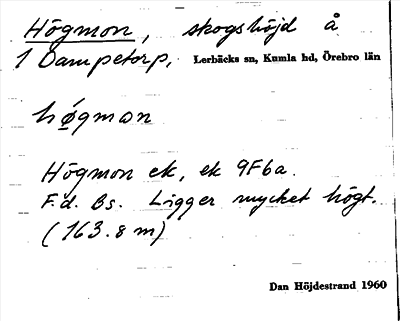 Högmon, skogshöjd å
1 Dampetorp, Lerbäcks sn, Kumla hd, Örebro län
høgmon
Högmon ek, ek 9F6a.
F.d. Bs. Ligger mycket högt.
(163.8 m)
Dan Höjdestrand 1960